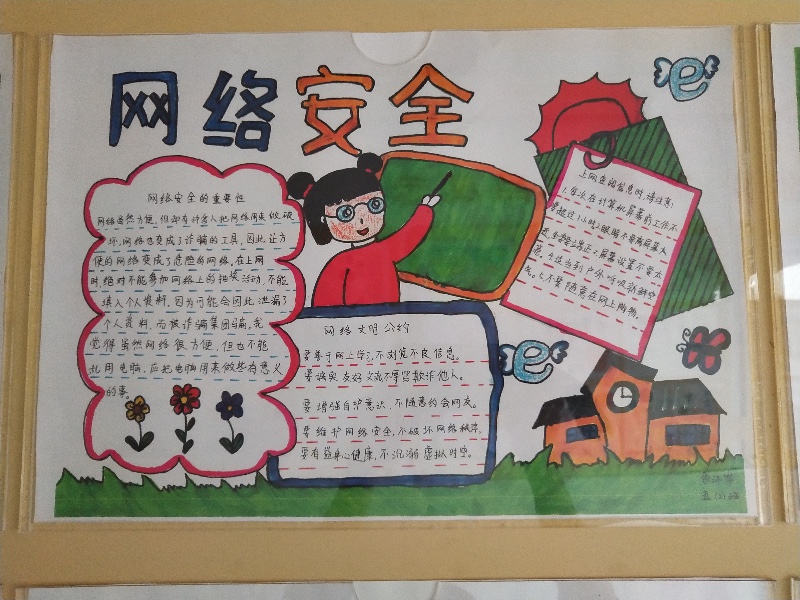 网络安全
网络安全的重要性
网络虽然方便,但却有许多人把网络用来做破
坏,网络也变成了诈骗的工具,因此让方
便的网络变成了危险的网络,在上网
时绝对不能参加网络上的抽奖活动,不能
填入个人资料,因为可能会因此泄漏了
个人资料,而被诈骗集团骗,我
觉得虽然网络很方便,但也不能
乱用电脑,应把电脑用来做些有意义
的事。
网络文明公约
要善于网上学习,不浏览不良信息。
要诚实友好交流不辱骂欺诈他人。
要增强自护意识,不随意约会网友。
要维护网络安全,不破坏网络秩序,
要有益身心健康,不沉溺虚拟时空。
上网查阅信息时,请注意:
1.每次在计算机屏幕前工作不
要超过1小时2.眼睛不要离屏幕太
屏幕设置不要太
适当到户外呼吸新鲜空
气。5.不要随意在网上购物。